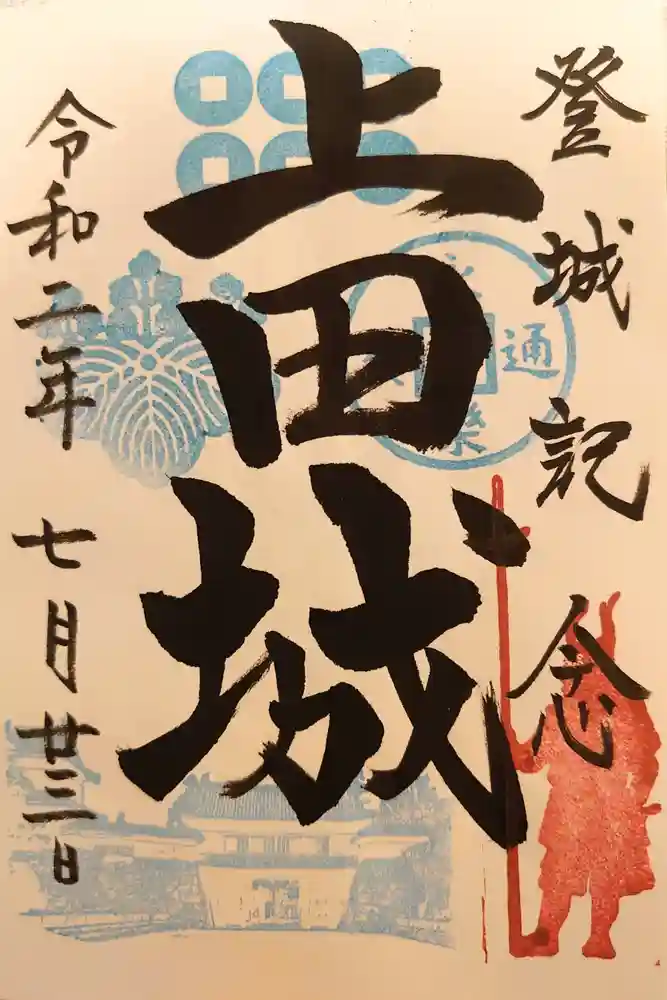 登城記念
上田城
令和二年 七月廿三日
永楽通